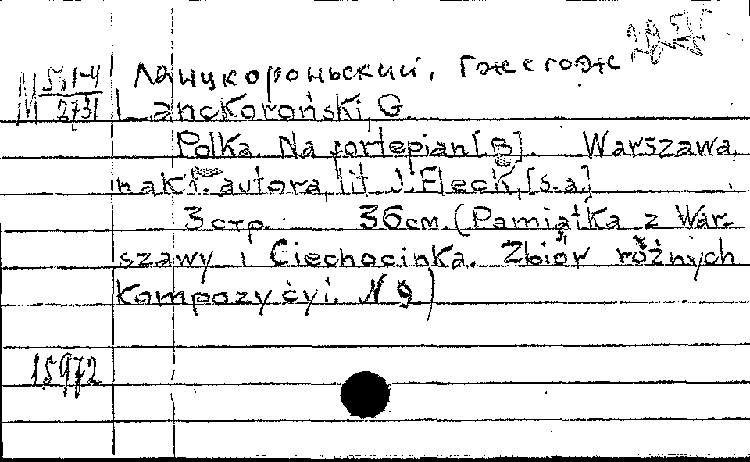 Ланцкороньский, Гжегож
М 5.1-4
2731
Lanckoroński, G.
Polka. Na fortepian [B]. Warszawa,
nakł. autora, lit J. Fleck, [s.a.]
3 стр. 36 см. (Pamiątka z War-
szawy i Ciechocinka. Zbiór różnych
kompozycyi. N 9)
15972